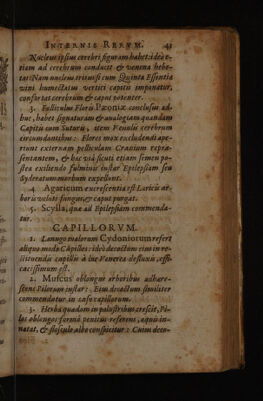 INTERNIS RERUM. 41
Nucleus ipsius cerebri figuram habet: ideo e-
tiam ad cerebrum conducit & venena hebe-
tat: Nam nucleus tritus si cum Quinta Essentia
vini humectatus vertici capitis imponatur,
confortat cerebrum & caput potenter.
3. Folliculus Floris Pæoniæ conclusus ad-
huc, habet signaturam & analogiam quandam
Capitis cum Suturis, item Venulis cerebrum
circumdantibus: Flores mox excludendi ape-
riunt externam pelliculam Cranium repræ-
sentantem, & hac viâ sicuti etiam semen po-
stea exiliendo fulminis instar Epilepsiam seu
Syderatum morbum expellent.
4. Agaricum excrescentia est Laricis ar-
boris veluti fungus, & caput purgat.
5. Scylla, quæ ad Epilepsiam commenda-
tur.
CAPILLORVM.
1. Lanugo malorum Cydoniorum refert
aliquo modo Capillos: ideò decoctum eius in re-
stituendis capillis à lue Venerea defluxis, effi-
cacissimum est.
2. Muscus oblongus arboribus adhære-
scens Pilorum instar: Eius decoctum similiter
commendatur in casu capillorum.
3. Herba quædam in palustribus crescit, Pi-
los oblongos formâ penitus referens, aquis in-
natat, & flosculo albo conspicitur: Cuius deco-